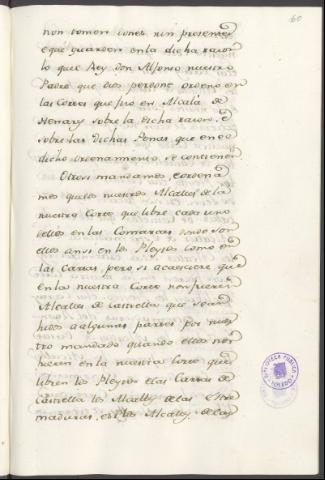 60
non tomen dones nin presentes
e que guarden en la dicha razon
lo que el Rey don Alfonso nuestro
Padre que dios perdone ordeno en
las Cortes que fizo en Alcalá de
Henares sobre la dicha razon, é
sobre las dichas Penas que en el
dicho ordenamiento se contienen
Otrosi mandamos, e ordena
mos que los nuestros Alcalles de la
nuestra Corte que libre cada uno
dellos en las Comarcas donde son
ellos ansi en los Pleytos como en
las Cartas pero si acaesciere que
en la nuestra Corte non fueren
Alcalles de Castiella que sean
hidos a algunas partes por nues
tro mandado quando ellos non
fueren en la nuestra Corte que
libren los Pleytos e las Cartas de
Castiella los Alcalles de las Estre
maduras, e los Alcalles de las
BIBLIOTECA PUBLICA
TOLEDO